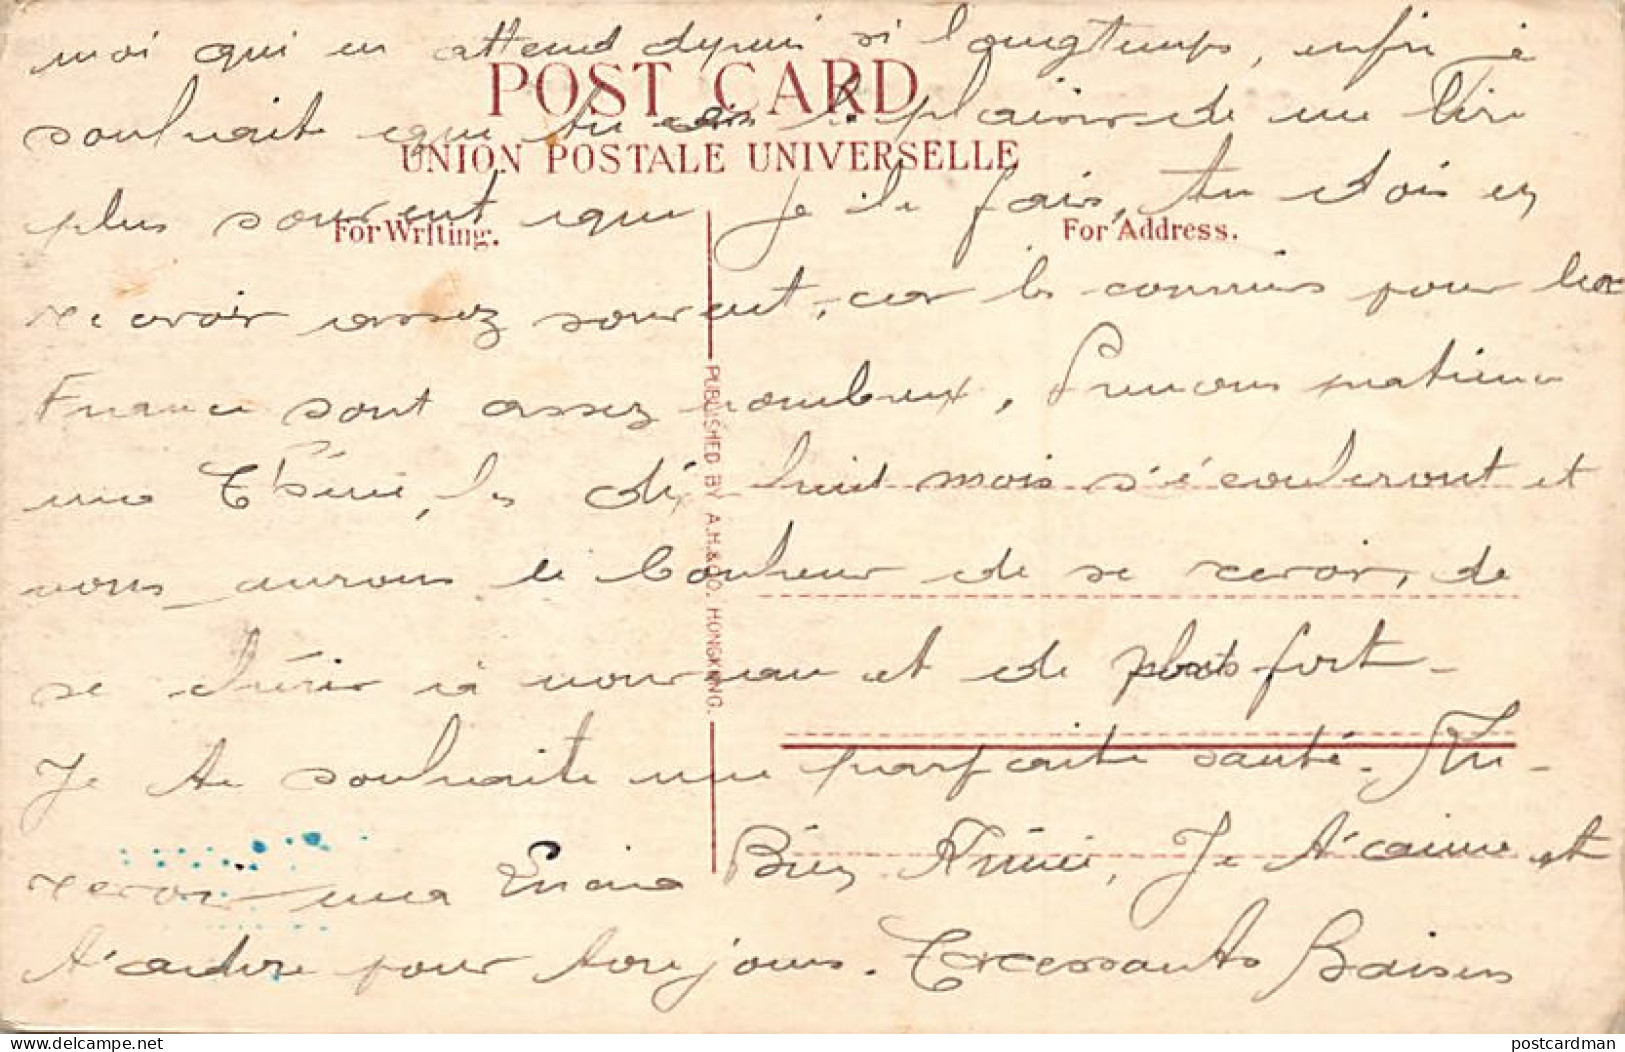 moi qui en attend depuis si longtemps, enfin je
POST CARD
souhaite que tu aies le plaisir de me lire
UNION POSTALE UNIVERSELLE
plus souvent que je le fais, tu dois en
For Writing. For Address.
recevoir assez souvent, car les courriers pour la
France sont assez nombreux, Prenons patience
ma Chérie, les dix huit mois s'écouleront et
nous aurons le bonheur de se revoir, de
se chérir à nouveau et de plus fort -
Je te souhaite une parfaite santé. Au -
revoir ma Bien Aimée, Je t'aime et
t'adore pour toujours. Baisers
PUBLISHED BY A.H. & CO. HONGKONG.
postcardman